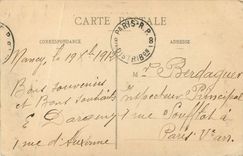 CARTE POSTALE
CORRESPONDANCE
ADRESSE
PARIS R.P.
DISTRIBON
8
Nancy, le 19
Bons Souvenirs
et Bons Souhaits
E Dargent
1 rue d'Auxonne
M. Berdaguer
Inspecteur Principal
1 rue Soufflot
Paris Ver